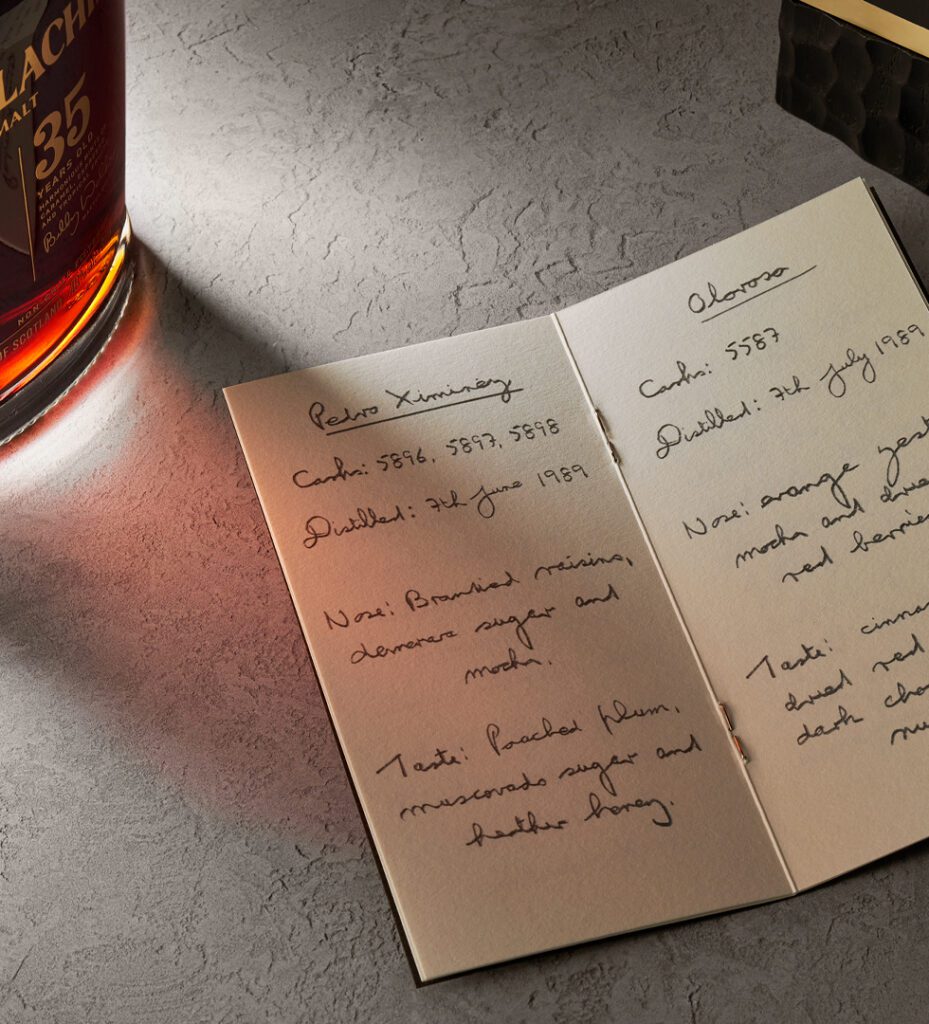 LACHI
MALT
35
YEARS OLD
CARAMEL,
Billy
NON
OF SCOTLAND
Pedro Ximinéz
Casks: 5896, 5897, 5898
Distilled: 7th June 1989
Nose: Brandied raisins,
demerara sugar and
mocha.
Taste: Poached plum,
muscovado sugar and
heather honey.
Oloroso
Casks: 5587
Distilled: 7th July 1989
Nose: orange zest
mocha and dried
red berrie
Taste: cinna
dried red
dark cho
nu